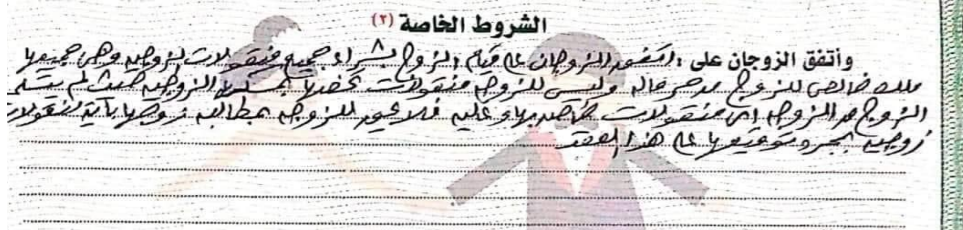 الشروط الخاصة (٢)
وأتفق الزوجان على : اتفق الزوجان على قيام الزوج بشراء جميع منقولات الزوجية وهى جميعها
ملك خالص للزوج من حر ماله وليس للزوجه منقولات تخصها بمسكن الزوجيه حيث لم يتسلم
الزوج من الزوجه اى منقولات خاصه بها وعليه فلا يحق للزوجه مطالبه زوجها بأية منقولات
زوجيه بمجرد توقيعها على هذا العقد